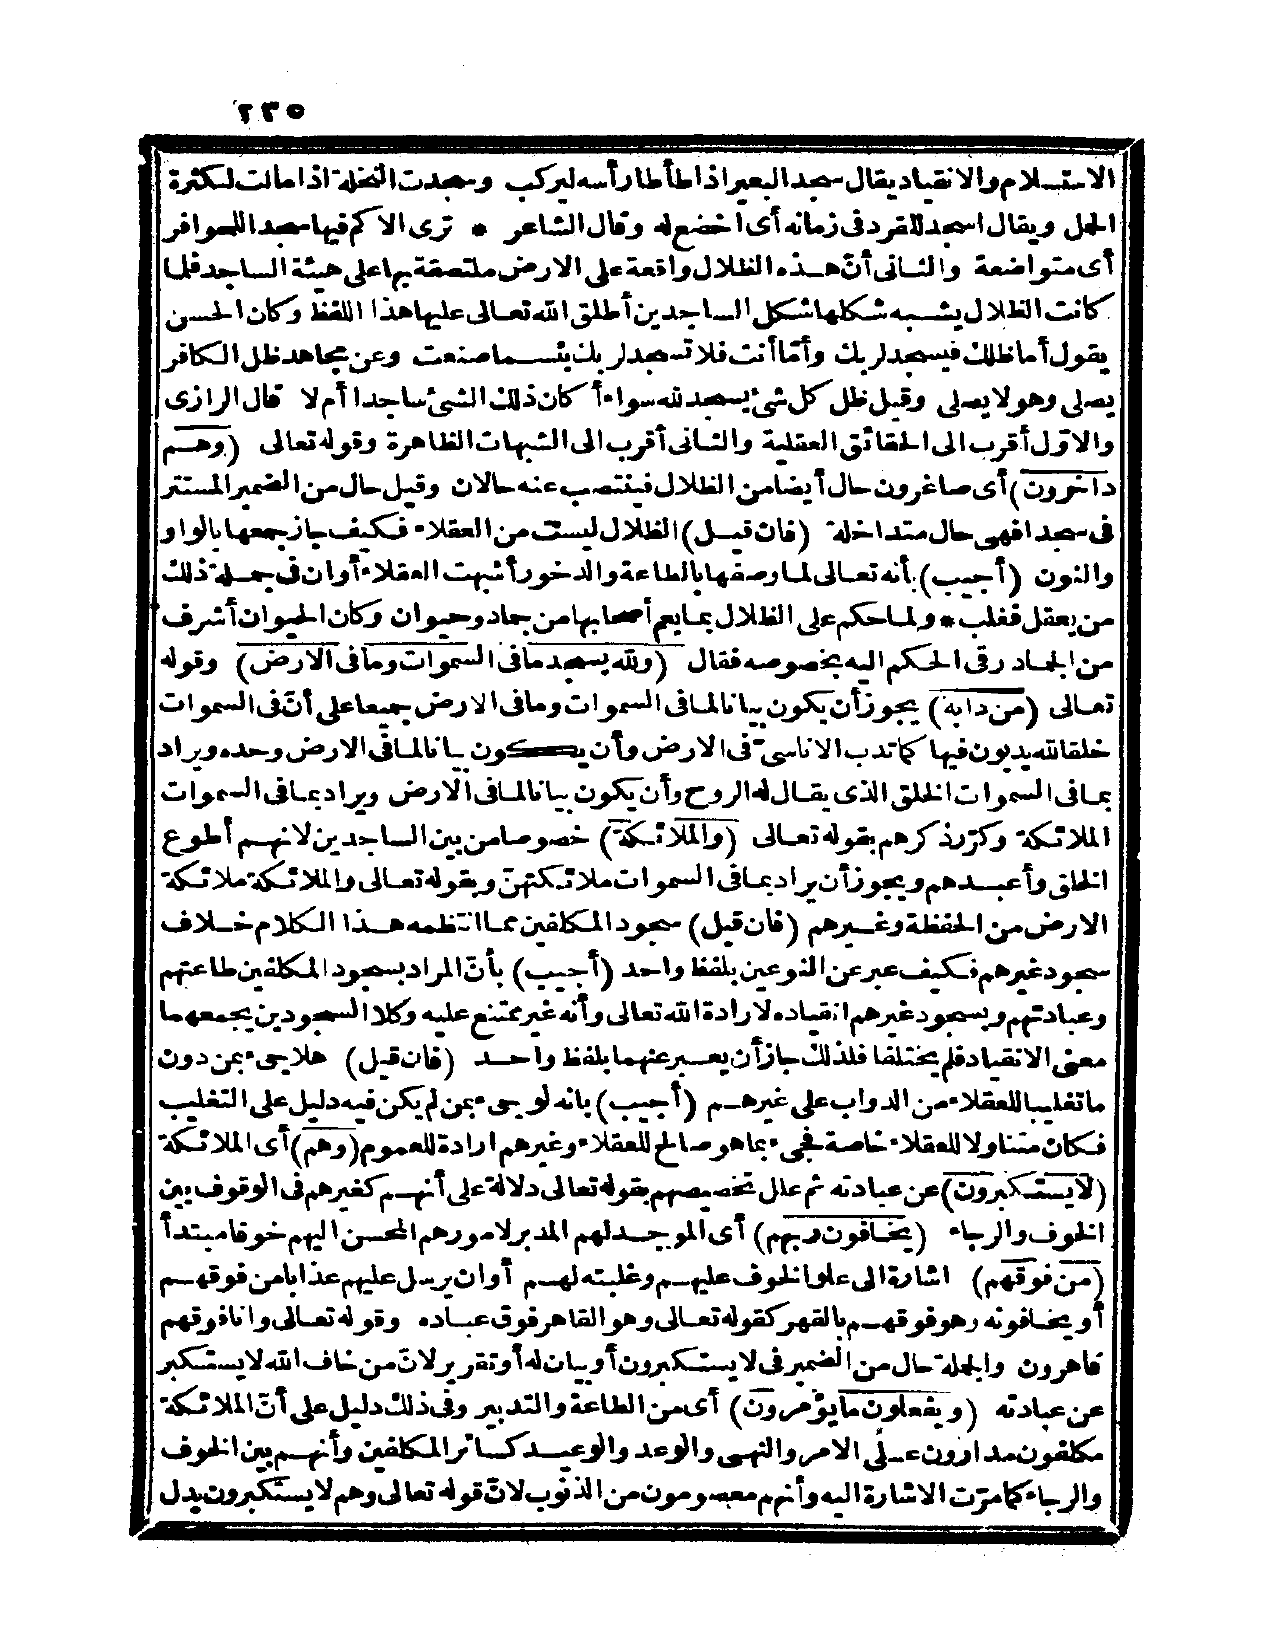 ٢٣٥
الاستسلام والانقياد يقال سجد البعير اذا طأطأ رأسه ليركب وسجدت النخلة اذا مالت لكثرة
الحمل ويقال اسجد للقرد فى زمانه أى اخضع له وقال الشاعر * ترى الاكم فيها سجدا للحوافر
أى متواضعة والثانى أنّ هذه الظلال واقعة على الارض ملتصقة بها على هيئة الساجد فلما
كانت الظلال يشبه شكلها شكل الساجدين أطلق الله تعالى عليها هذا اللفظ وكان الحسن
يقول أما ظلك فيسجد لربك وأمّا أنت فلا تسجد لربك بئسما صنعت وعن مجاهد ظل الكافر
يصلى وهو لا يصلى وقيل ظل كل شئ يسجد لله سواء أكان ذلك الشئ ساجدا أم لا قال الرازى
والاوّل أقرب الى الحقائق العقلية والثانى أقرب الى الشبهات الظاهرة وقوله تعالى (وهم
داخرون) أى صاغرون حال أيضا من الظلال فينتصب عنه حالان وقيل حال من الضمير المستتر
فى سجدا فهى حال متداخلة (فان قيل) الظلال ليست من العقلاء فكيف جاز جمعها بالواو
والنون (أجيب) بأنه تعالى لما وصفها بالطاعة والدخور أشبهت العقلاء أو ان فى جملة ذلك
من يعقل فغلب * ولما حكم على الظلال بما يعم أصحابها من جماد وحيوان وكان الحيوان أشرف
من الجماد رقى الحكم اليه بخصوصه فقال (ولله يسجد ما فى السموات وما فى الارض) وقوله
تعالى (من دابة) يجوز أن يكون بيانا لما فى السموات وما فى الارض جميعا على أنّ فى السموات
خلقا لله يدبون فيها كما تدب الاناسىّ فى الارض وأن يكون بيانا لما فى الارض وحده ويراد
بما فى السموات الخلق الذى يقال له الروح وأن يكون بيانا لما فى الارض ويراد بما فى السموات
الملائكة وكرّر ذكرهم بقوله تعالى (والملائكة) خصوصا من بين الساجدين لانهم أطوع
الخلق وأعبدهم ويجوز أن يراد بما فى السموات ملائكتهنّ وبقوله تعالى والملائكة ملائكة
الارض من الحفظة وغيرهم (فان قيل) سجود المكلفين مما انتظمه هذا الكلام خلاف
سجود غيرهم فكيف عبر عن النوعين بلفظ واحد (أجيب) بأنّ المراد بسجود المكلفين طاعتهم
وعبادتهم وبسجود غيرهم انقياده لارادة الله تعالى وأنه غير ممتنع عليه وكلا السجودين يجمعهما
معنى الانقياد فلم يختلفا فلذلك جاز أن يعبر عنهما بلفظ واحد (فان قيل) هلا جىء بمن دون
ما تغليبا للعقلاء من الدواب على غيرهم (أجيب) بانه لو جىء بمن لم يكن فيه دليل على التغليب
فكان متناولا للعقلاء خاصة فجىء بما هو صالح للعقلاء وغيرهم ارادة للعموم (وهم) أى الملائكة
(لا يستكبرون) عن عبادته ثم علل تخصيصهم بقوله تعالى دلالة على أنهم كغيرهم فى الوقوف بين
الخوف والرجاء (يخافون ربهم) أى الموجد لهم المدبر لامورهم المحسن اليهم خوفا مبتدأ
(من فوقهم) اشارة الى علو الخوف عليهم وغلبته لهم أو ان يرسل عليهم عذابا من فوقهم
أو يخافونه وهو فوقهم بالقهر كقوله تعالى وهو القاهر فوق عباده وقوله تعالى وانا فوقهم
قاهرون والجملة حال من الضمير فى لا يستكبرون أو بيان له أو تقرير لانّ من خاف الله لا يستكبر
عن عبادته (ويفعلون ما يؤمرون) أى من الطاعة والتدبير وفى ذلك دليل على أنّ الملائكة
مكلفون مدارون على الامر والنهى والوعد والوعيد كسائر المكلفين وأنهم بين الخوف
والرجاء كما مرّت الاشارة اليه وأنهم معصومون من الذنوب لانّ قوله تعالى وهم لا يستكبرون يدل